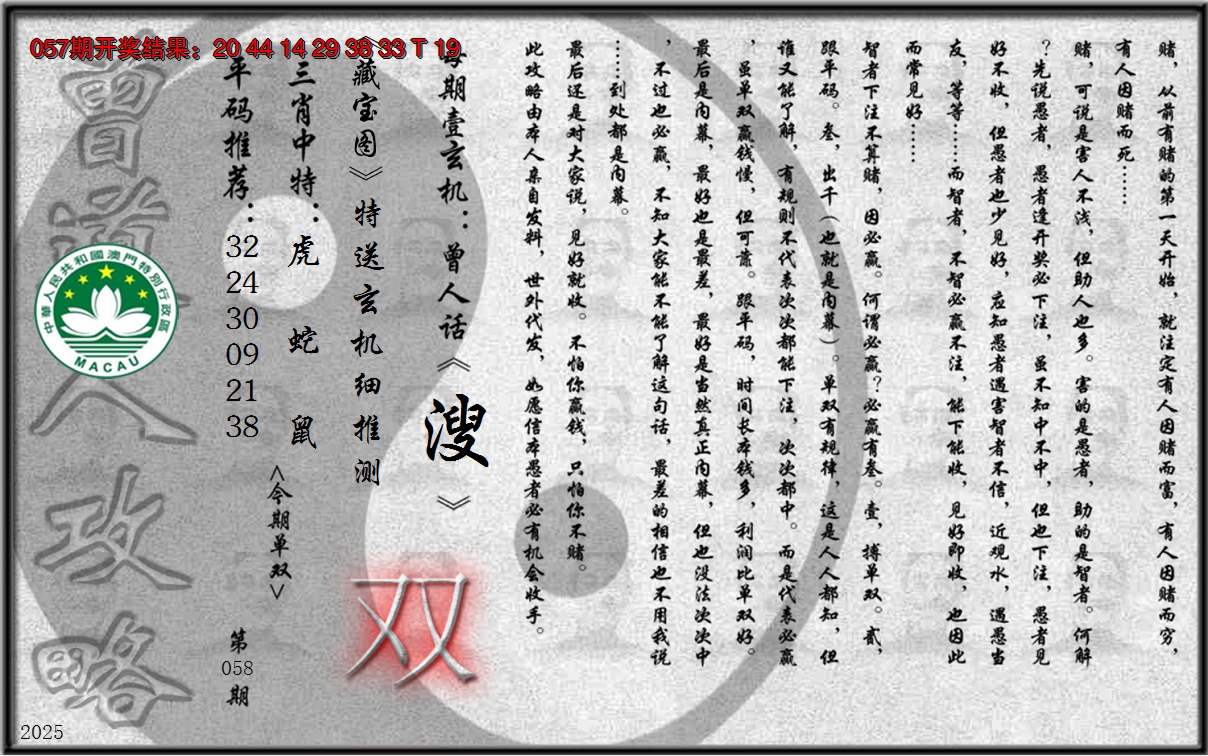 057期开奖结果：20 44 14 29 38 33 T 19
赌，从前有赌的第一天开始，就注定有人因赌而富，有人因赌而穷，
有人因赌而死……
赌，可说是害人不浅，但助人也多。害的是愚者，助的是智者。何解
？先说愚者，愚者逢开奖必下注，虽不知中不中，但也下注，愚者见
好不收，但愚者也少见好，应知愚者遇害智者不信，近观水，遇愚当
友，等等……而智者，不智必赢不注，能下能收，见好即收，也因此
而常见好……
智者下注不算赌，因必赢。何谓必赢？必赢有叁。壹，搏单双。贰，
跟平码。叁，出千（也就是内幕）。单双有规律，这是人人都知，但
谁又能了解，有规则不代表次次都能下注，次次都中。而是代表必赢
，虽单双赢钱慢，但可靠。跟平码，时间长本钱多，利润比单双好。
最后是内幕，最好也是最差，最好是当然真正内幕，但也没法次次中
，不过也必赢，不知大家能不能了解这句话，最差的相信也不用我说
……到处都是内幕。
最后还是对大家说，见好就收。不怕你赢钱，只怕你不赌。
此攻略由本人亲自发料，世外代发，如愿信本愚者必有机会收手。
每期壹玄机：曾人话《溲》
《藏宝图》特送玄机细推测
双
三肖中特：虎 蛇 鼠
<今期单双>
平码推荐：
32
24
30
09
21
38
第
058
期
曾道人攻略
中華人民共和國澳門特別行政區
MACAU
2025